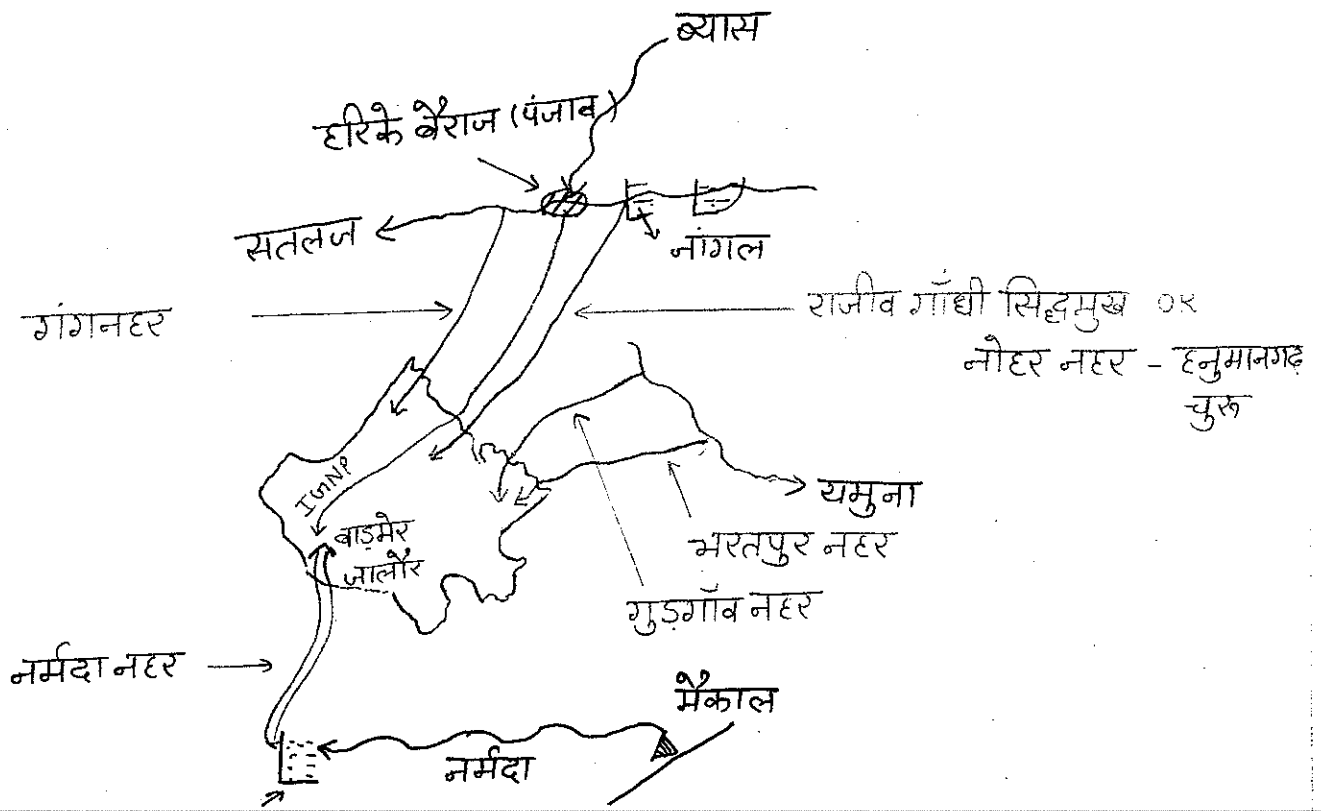 ब्यास
हरिके बैराज (पंजाब)
सतलज
नांगल
गंगनहर
राजीव गाँधी सिद्धमुख OR
नोहर नहर - हनुमानगढ़
चुरू
IGNP
बाड़मेर
जालौर
यमुना
भरतपुर नहर
गुड़गाँव नहर
नर्मदा नहर
मैकाल
नर्मदा